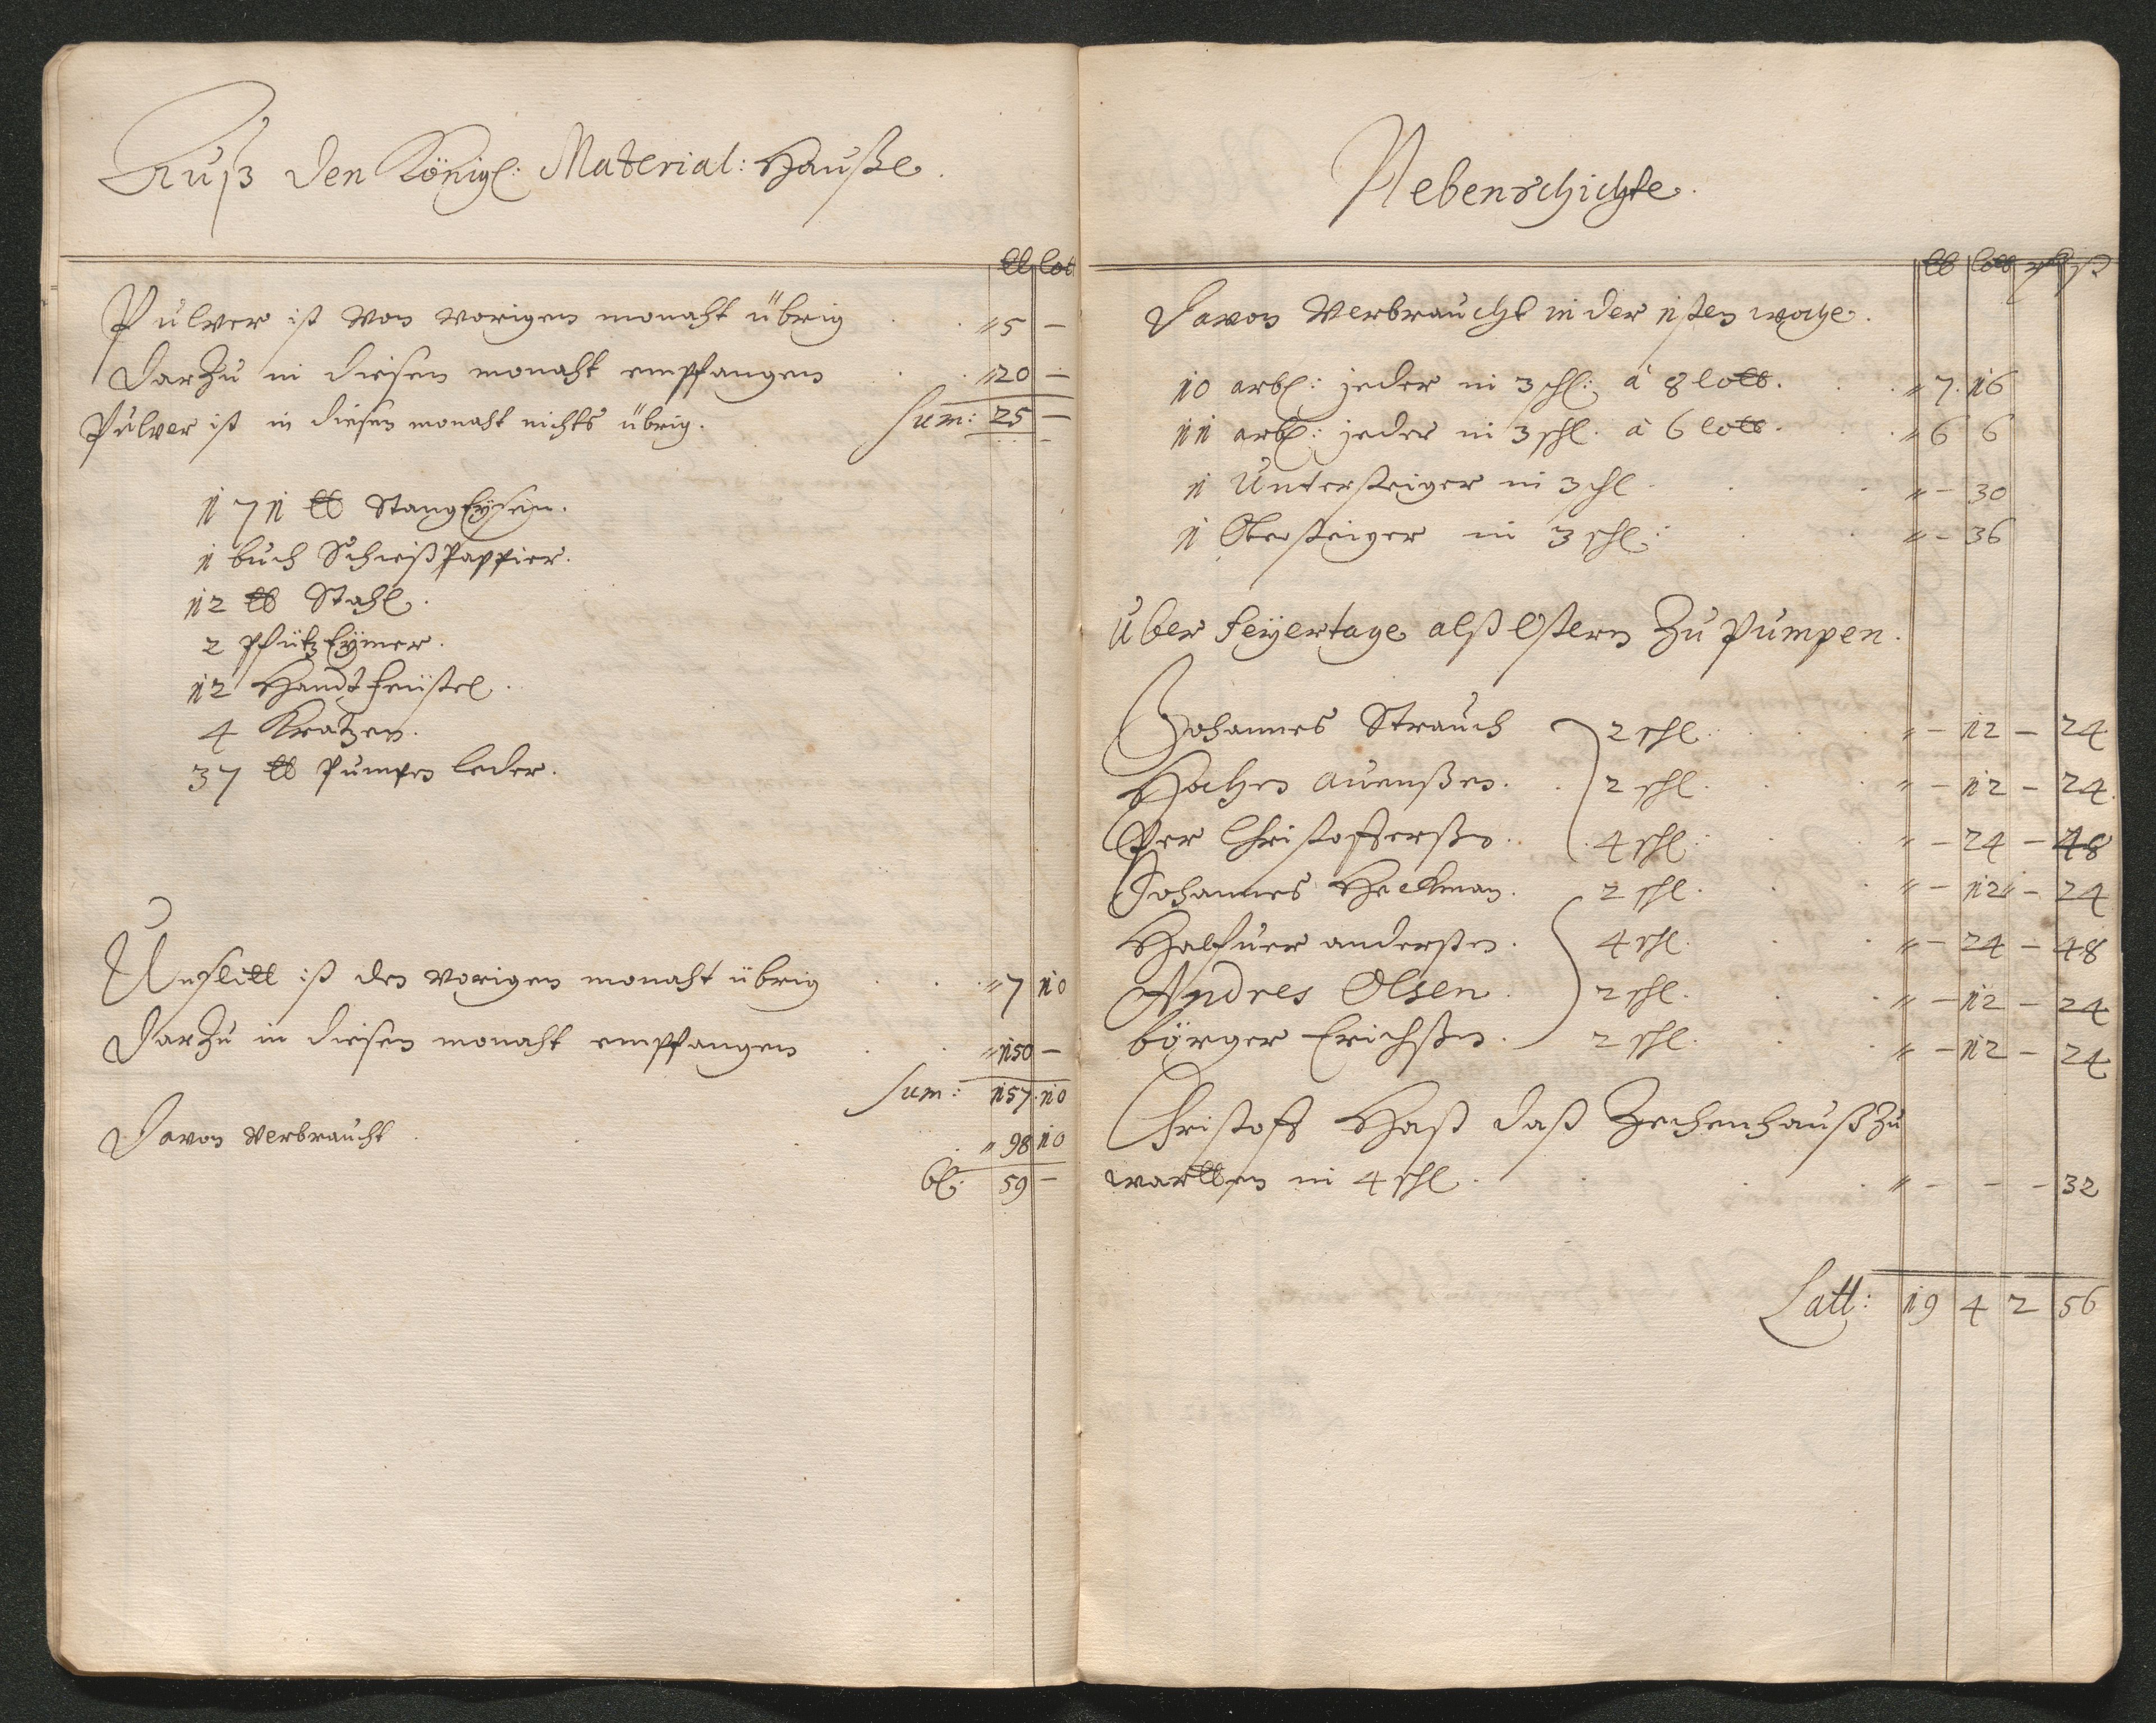 Auß den Königl: Material: Hauße.
lb lot
Pulver ist von vorigen monaht übrig . . " 5 —
Darzu in diesen monaht empfangen . . " 20 —
Pulver ist in diesen monaht nichts übrig. Sum: 25 —
171 lb StangEÿsen.
1 buch SchießPappier.
12 lb Stahl.
2 PfützEÿmer.
12 Handtfeüstel.
4 Kratzen.
37 lb Pumpen leder.
Unslitt ist des vorigen monaht übrig . . . " 7 10
Darzu in diesen monaht empfangen . . " 150 —
Sum: 157. 10
Davon verbraucht . . . " 98 10
bl: 59 —
Nebenschichte.
lb lott
Davon Verbraucht in der 1sten woche.
10 arb: jeder in 3 schl: à 8 lott. . . " 7. 16
11 arb: jeder in 3 schl. à 6 lott. . . " 6 6
1 Untersteiger in 3 schl . . . " — 30
1 Obersteiger in 3 schl: . . " — 36
Uber feÿertage alß Ostern Zu Pumpen.
Johannes Strauch 2 schl. . . . " — 12 — 24
Hachen auenßen. . 2 schl. . . " — 12 — 24.
Per Christofferßen. 4 schl. . . " — 24 — 48
Johannes Heckman. 2 schl. . . " — 12 — 24
Halfuer anderßen. 4 schl. . . " — 24 — 48
Andres Olsen. 2 schl. . . " — 12 — 24
börger Erichßen. 2 schl. . . " — 12 — 24
Christoff Haß daß Zechenhauß Zu
wartten in 4 schl. . . . " — — — 32
Latt: 19 4 2 56